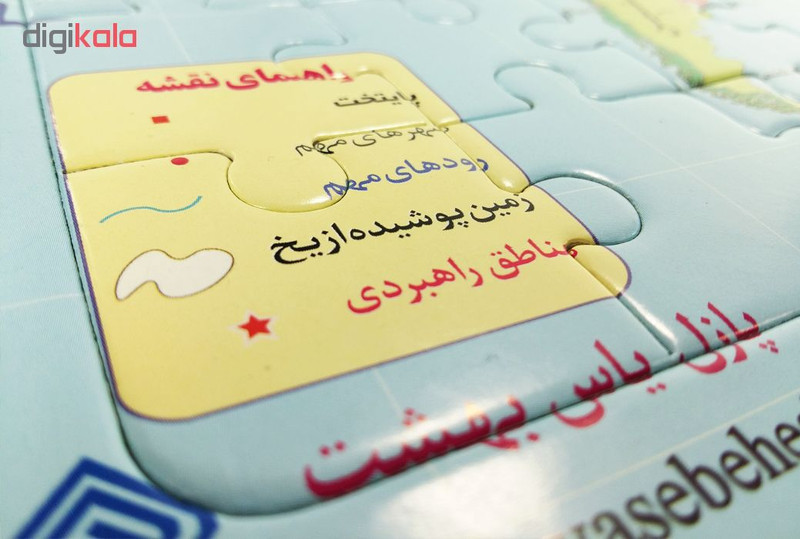 digikala
راهمای نقشه
پایتخت
شهرهای مهم
رودهای مهم
زمین پوشیده از یخ
مناطق راهبردی
پازل یاس بهشت
yasebehe